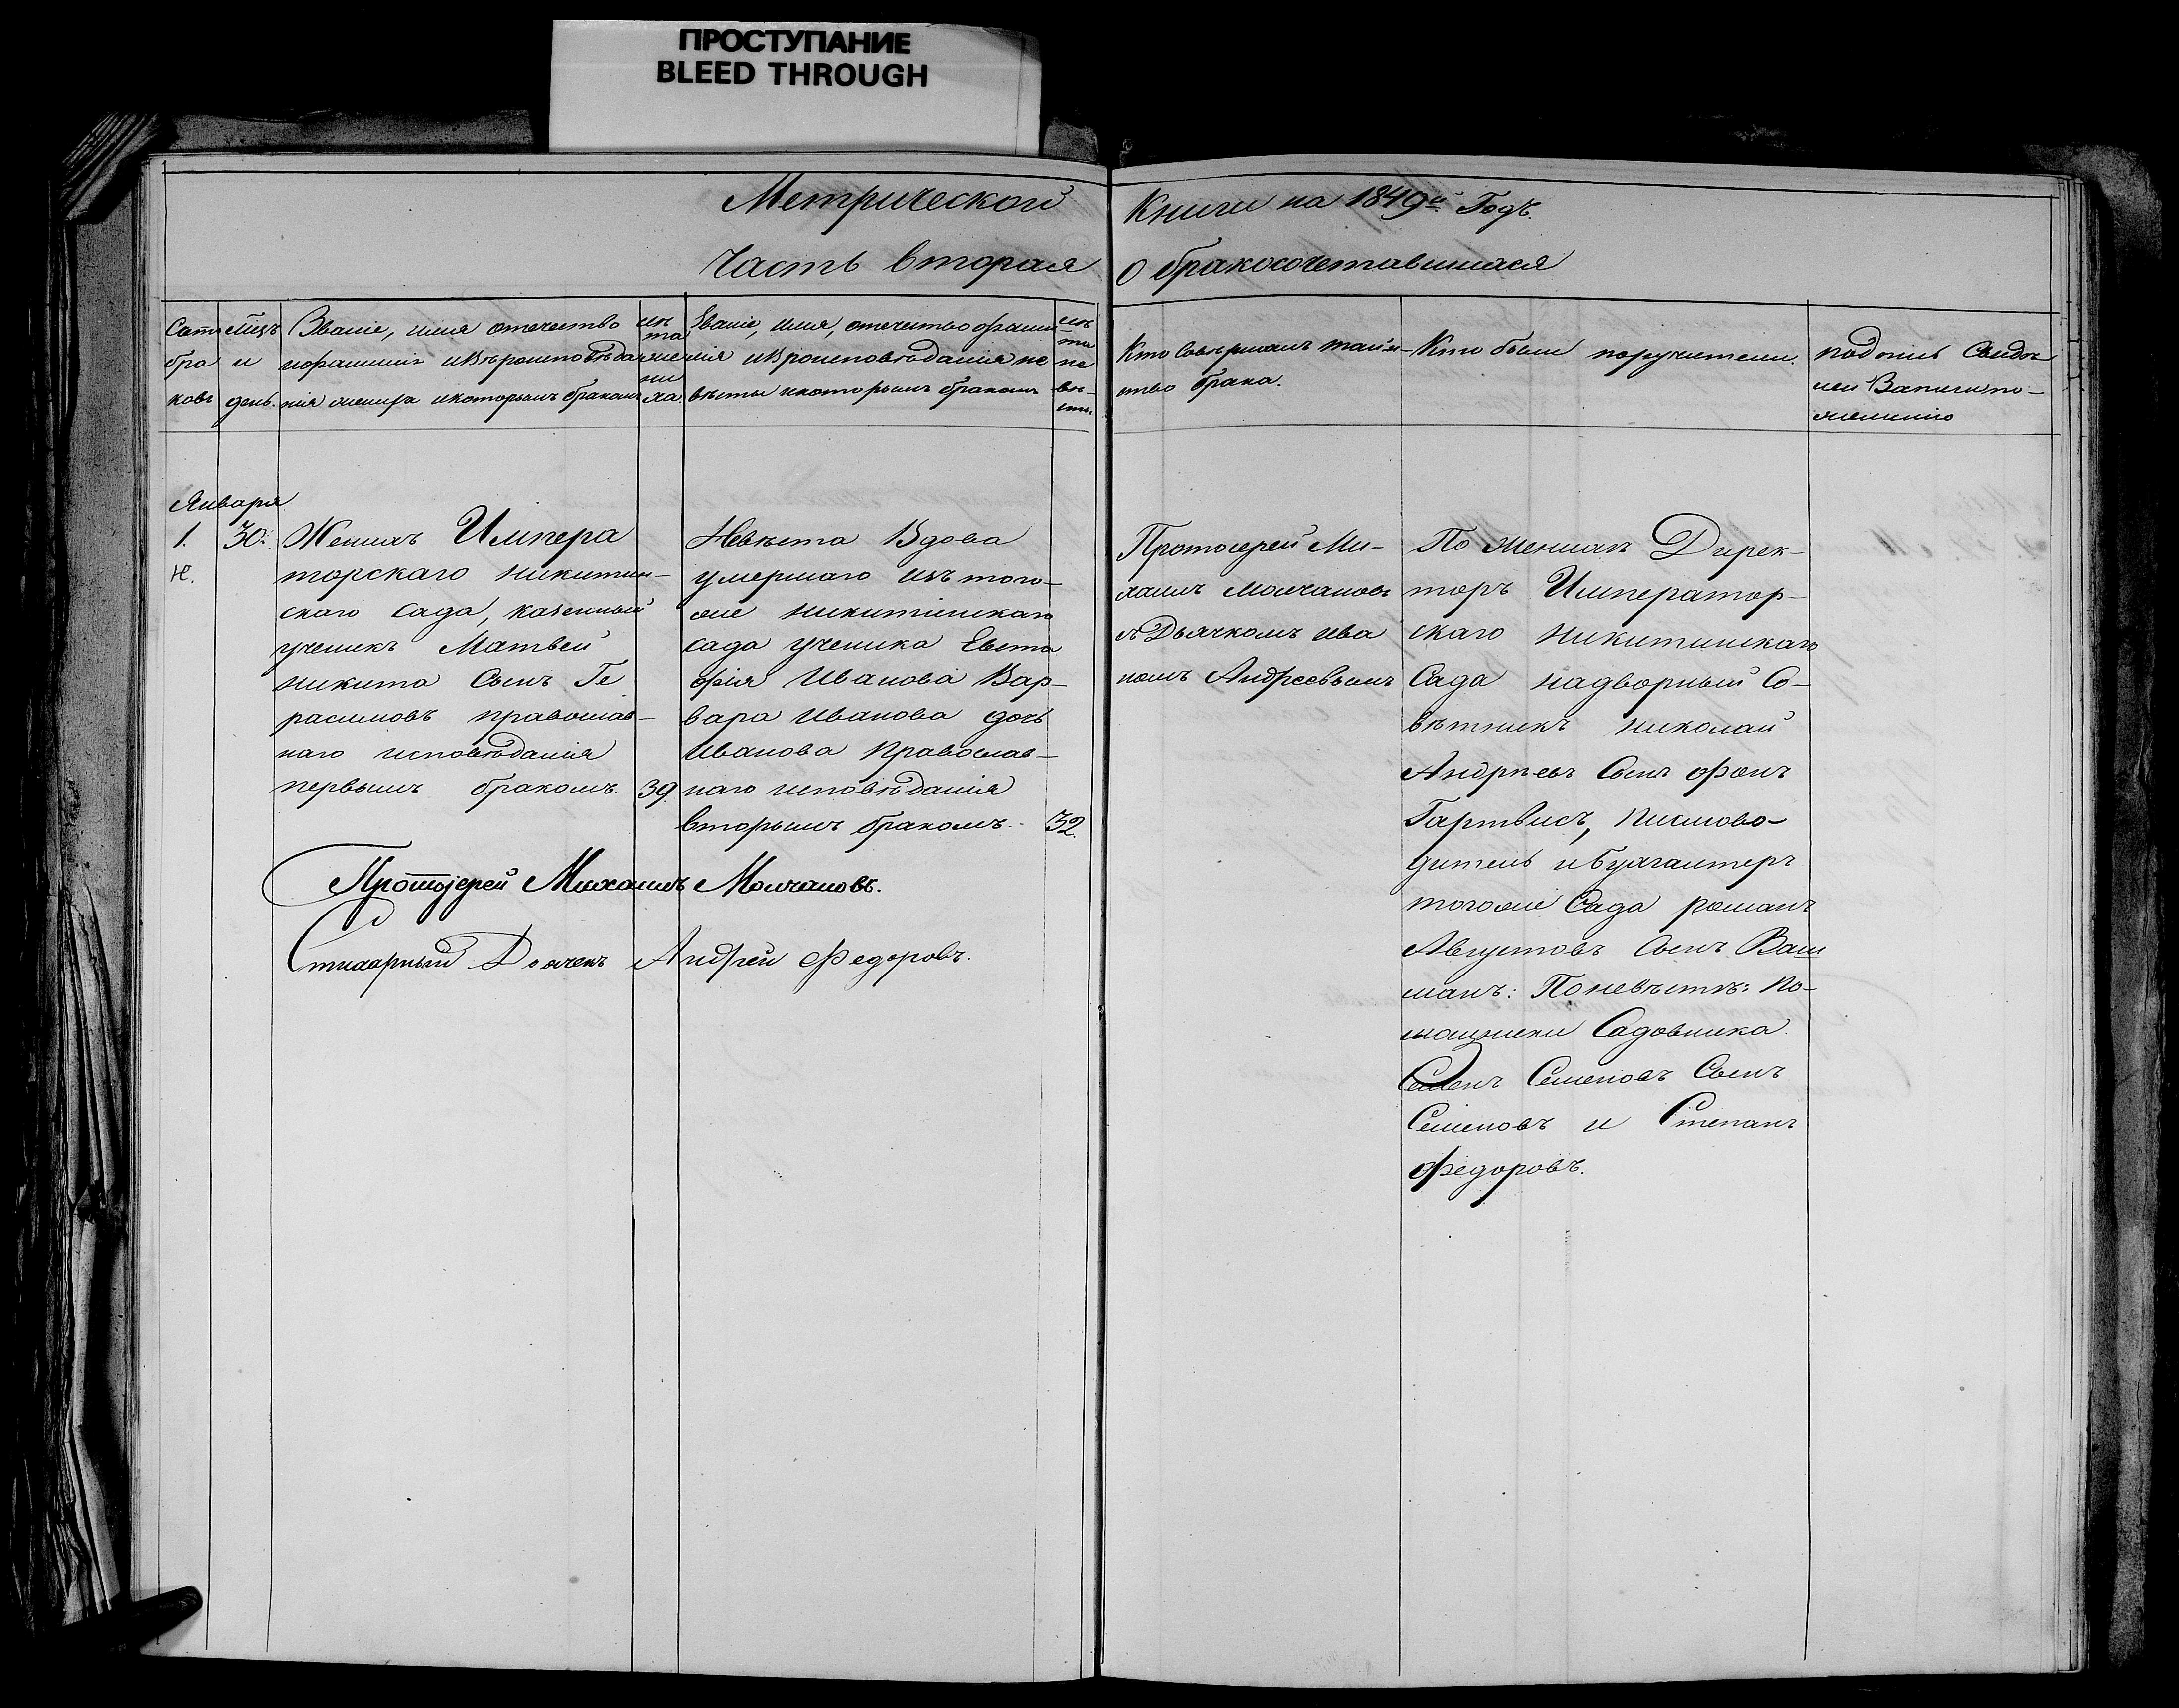 ПРОСТУПАНИЕ
BLEED THROUGH
Метрической Книги на 1849й Годъ.
Часть вторая О бракосочетавшихся
Счетъ
бра
ковъ
мцъ
и
день.
Званіе, имя отечество
и фамилія и Вѣроисповѣда
нія жениха и которымъ бракомъ
лѣ
та
же
ни
ха.
Званіе, имя, отечество фами
лія и Вроисповѣданія не
вѣсты и которымъ бракомъ
лѣ
та
не
вѣ-
сты.
Кто Совершалъ таин-
ство брака.
Кто были поручители.
подпись Свидѣ
лей Записи по-
желанію
Января
1. 30.
Н.
Женихъ Импера
торскаго Никитин-
скаго Сада, казенный
ученикъ Матвей
Никита Сынъ Ге
расимовъ православ-
наго исповѣданія
первымъ бракомъ. 39.
Невѣста Вдова
умершаго изъ того-
же Никитинскаго
сада ученика Евста
фія Иванова Вар-
вара Иванова дочь
Иванова Православ-
наго исповѣданія
вторымъ бракомъ. 32.
Протоіерей Михаилъ Молчановъ.
Стихарный Дьячекъ Андрей Федоровъ.
Протоерей Ми-
хаилъ Молчановъ
съ Дьячкомъ Ива
номъ Андреевымъ
По Женихѣ Дирек-
торъ Император-
скаго Никитинскаго
Сада надворный Со-
вѣтникъ Николай
Андреевъ Сынъ фонъ
Гартвисъ, Писмово-
дитель и Бухгалтеръ
тогоже Сада романъ
Августовъ Сынъ Ваш
манъ: По невѣстѣ: По-
мощники Садовника
Семенъ Семеновъ Сынъ
Семеновъ и Степанъ
Федоровъ.